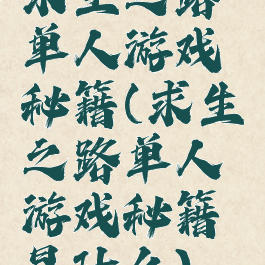 求生之路
单人游戏
秘籍(求生
之路单人
游戏秘籍
是什么)